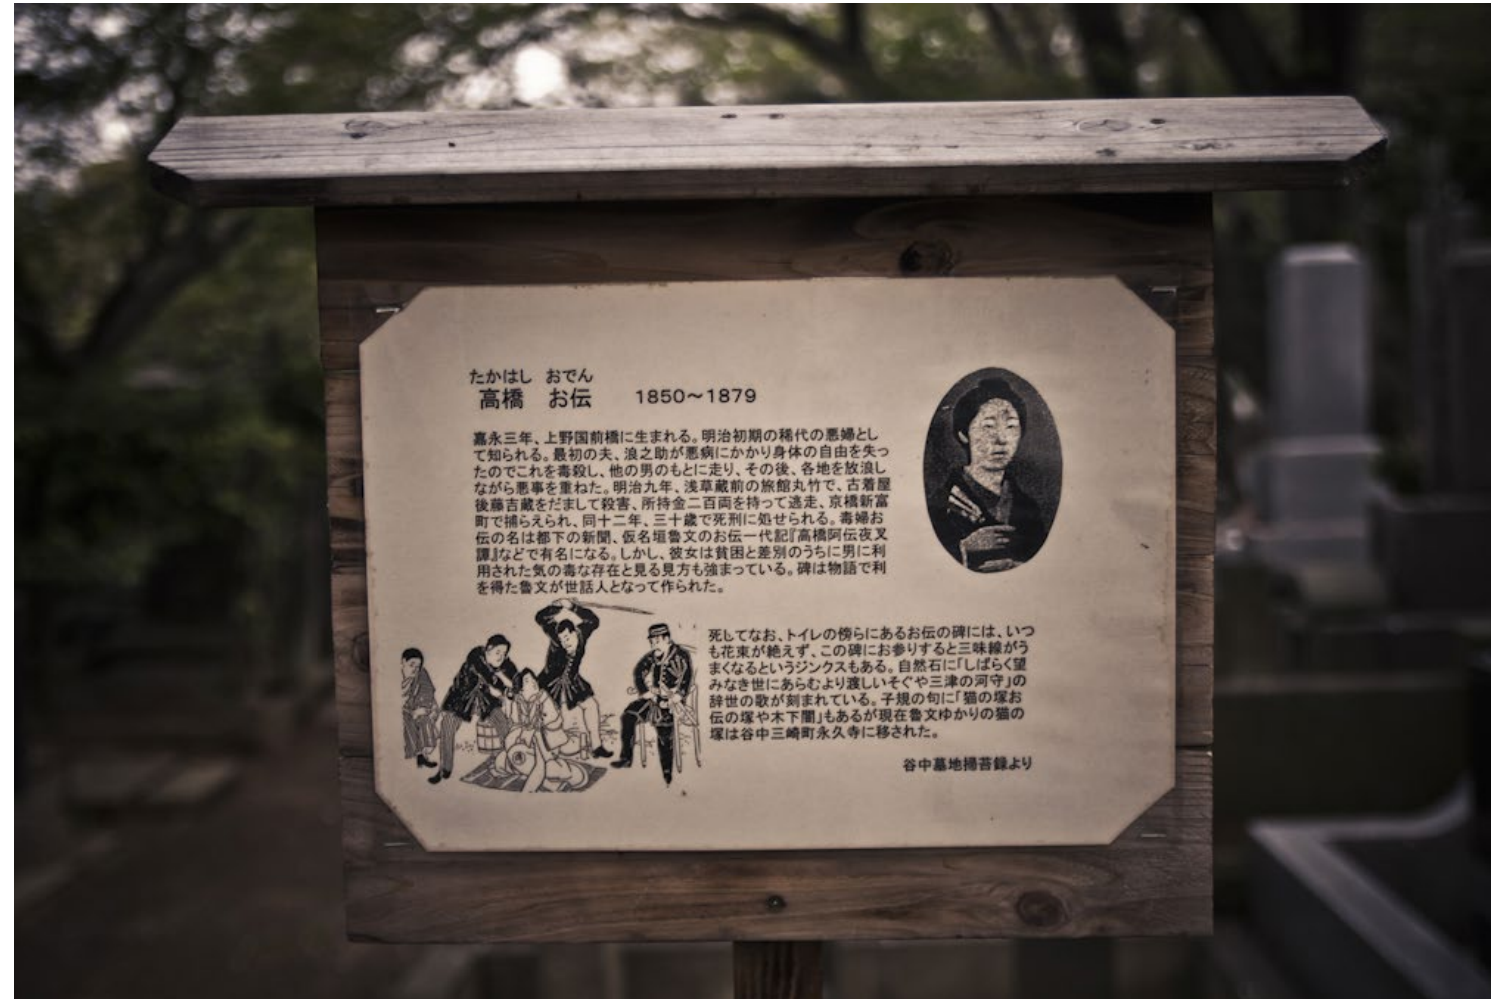 たかはし おでん
高橋 お伝 1850〜1879
嘉永三年、上野国前橋に生まれる。明治初期の稀代の悪婦とし
て知られる。最初の夫、浪之助が悪病にかかり身体の自由を失っ
たのでこれを毒殺し、他の男のもとに走り、その後、各地を放浪し
ながら悪事を重ねた。明治九年、浅草蔵前の旅館丸竹で、古着屋
後藤吉蔵をだまして殺害、所持金二百両を持って逃走、京橋新富
町で捕らえられ、同十二年、三十歳で死刑に処せられる。毒婦お
伝の名は都下の新聞、仮名垣魯文のお伝一代記『高橋阿伝夜叉
譚』などで有名になる。しかし、彼女は貧困と差別のうちに男に利
用された気の毒な存在と見る見方も強まっている。碑は物語で利
を得た魯文が世話人となって作られた。
死してなお、トイレの傍らにあるお伝の碑には、いつ
も花束が絶えず、この碑にお参りすると三味線がう
まくなるというジンクスもある。自然石に「しばらく望
みなき世にあらむより渡しいそぐや三津の河守」の
辞世の歌が刻まれている。子規の句に「猫の塚お
伝の塚や木下闇」もあるが現在魯文ゆかりの猫の
塚は谷中三崎町永久寺に移された。
谷中墓地掃苔録より